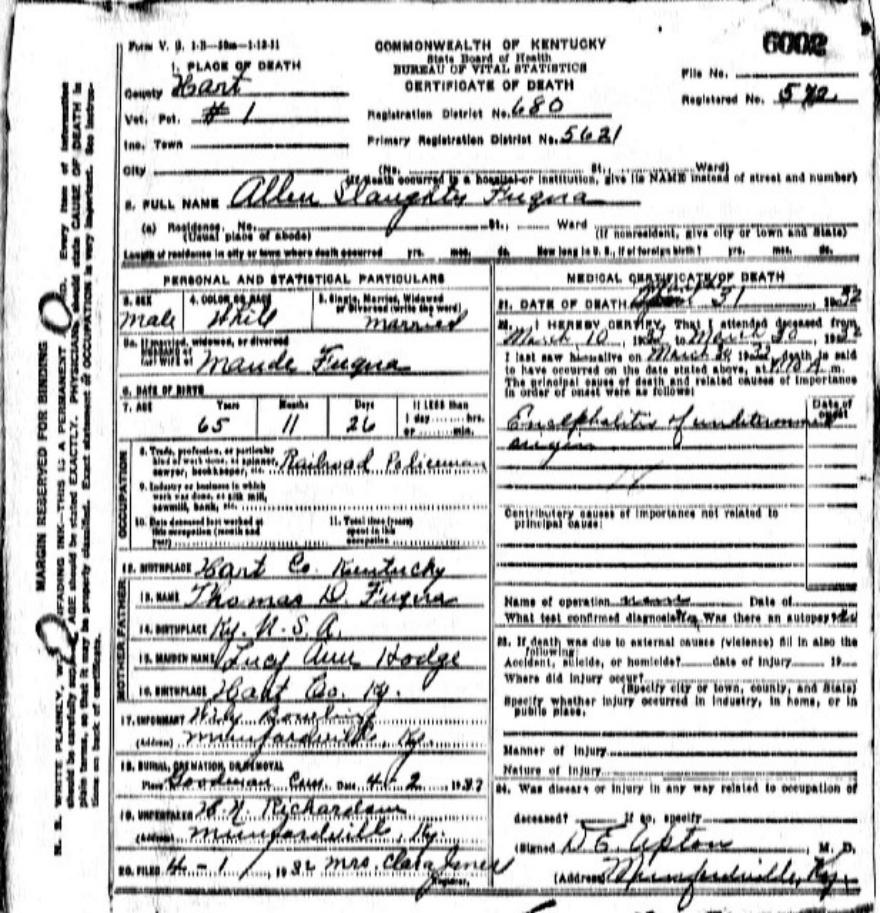 Form V. S. 1-B—50m—1-12-31
COMMONWEALTH OF KENTUCKY
State Board of Health
BUREAU OF VITAL STATISTICS
CERTIFICATE OF DEATH
6002
File No.
Registered No. 572
1. PLACE OF DEATH
County Hart
Vot. Pct. # 1
Inc. Town
City
Registration District No. 680
Primary Registration District No. 5621
(No. St., Ward)
(If death occurred in a hospital or institution, give its NAME instead of street and number)
2. FULL NAME Allen Slaughter Fuqua
(a) Residence. No. St., Ward
(Usual place of abode) (If nonresident, give city or town and State)
Length of residence in city or town where death occurred yrs. mos. ds. How long in U. S., if of foreign birth? yrs. mos. ds.
PERSONAL AND STATISTICAL PARTICULARS
3. SEX 4. COLOR OR RACE 5. Single, Married, Widowed
or Divorced (write the word)
Male White married
5a. If married, widowed, or divorced
HUSBAND of
(or) WIFE of Maude Fuqua
6. DATE OF BIRTH
7. AGE Years Months Days If LESS than
1 day hrs.
or min.
65 11 26
OCCUPATION
8. Trade, profession, or particular
kind of work done, as spinner,
sawyer, bookkeeper, etc. Railroad Policeman
9. Industry or business in which
work was done, as silk mill,
sawmill, bank, etc.
10. Date deceased last worked at
this occupation (month and
year)
11. Total time (years)
spent in this
occupation
12. BIRTHPLACE Hart Co. Kentucky
FATHER
13. NAME Thomas D. Fuqua
14. BIRTHPLACE Ky. U.S.A.
MOTHER
15. MAIDEN NAME Lucy Ann Hodge
16. BIRTHPLACE Hart Co. Ky.
17. INFORMANT
(Address) Munfordville, Ky.
18. BURIAL, CREMATION, OR REMOVAL
Place Goodman Cem. Date 4-2 1932
19. UNDERTAKER H. N. Richardson
(Address) Munfordville, Ky.
20. FILED 4-1, 1932 Mrs. Clara Jones
Registrar.
MEDICAL CERTIFICATE OF DEATH
21. DATE OF DEATH March 31, 1932
22. I HEREBY CERTIFY, That I attended deceased from
March 10, 1932 to March 30, 1932
I last saw him alive on March 1932, death is said
to have occurred on the date stated above, at m.
The principal cause of death and related causes of importance
in order of onset were as follows:
Date of
onset
Encephalitis of undetermined
origin
Contributory causes of importance not related to
principal cause:
Name of operation none Date of
What test confirmed diagnosis? Was there an autopsy?
23. If death was due to external causes (violence) fill in also the
following:
Accident, suicide, or homicide? date of injury 19
Where did injury occur?
(Specify city or town, county, and State)
Specify whether injury occurred in industry, in home, or in
public place.
Manner of injury
Nature of injury
24. Was disease or injury in any way related to occupation of
deceased? If so, specify
(Signed D. E. Upton, M. D.
(Address) Munfordville, Ky.
MARGIN RESERVED FOR BINDING
N. B. WRITE PLAINLY, UNFADING INK—THIS IS A PERMANENT Every item of information
should be carefully AGE should be stated EXACTLY. PHYSICIANS should state CAUSE OF DEATH in
plain terms, so that it may be properly classified. Exact statement of OCCUPATION is very important. See instruc-
tions on back of certificate.